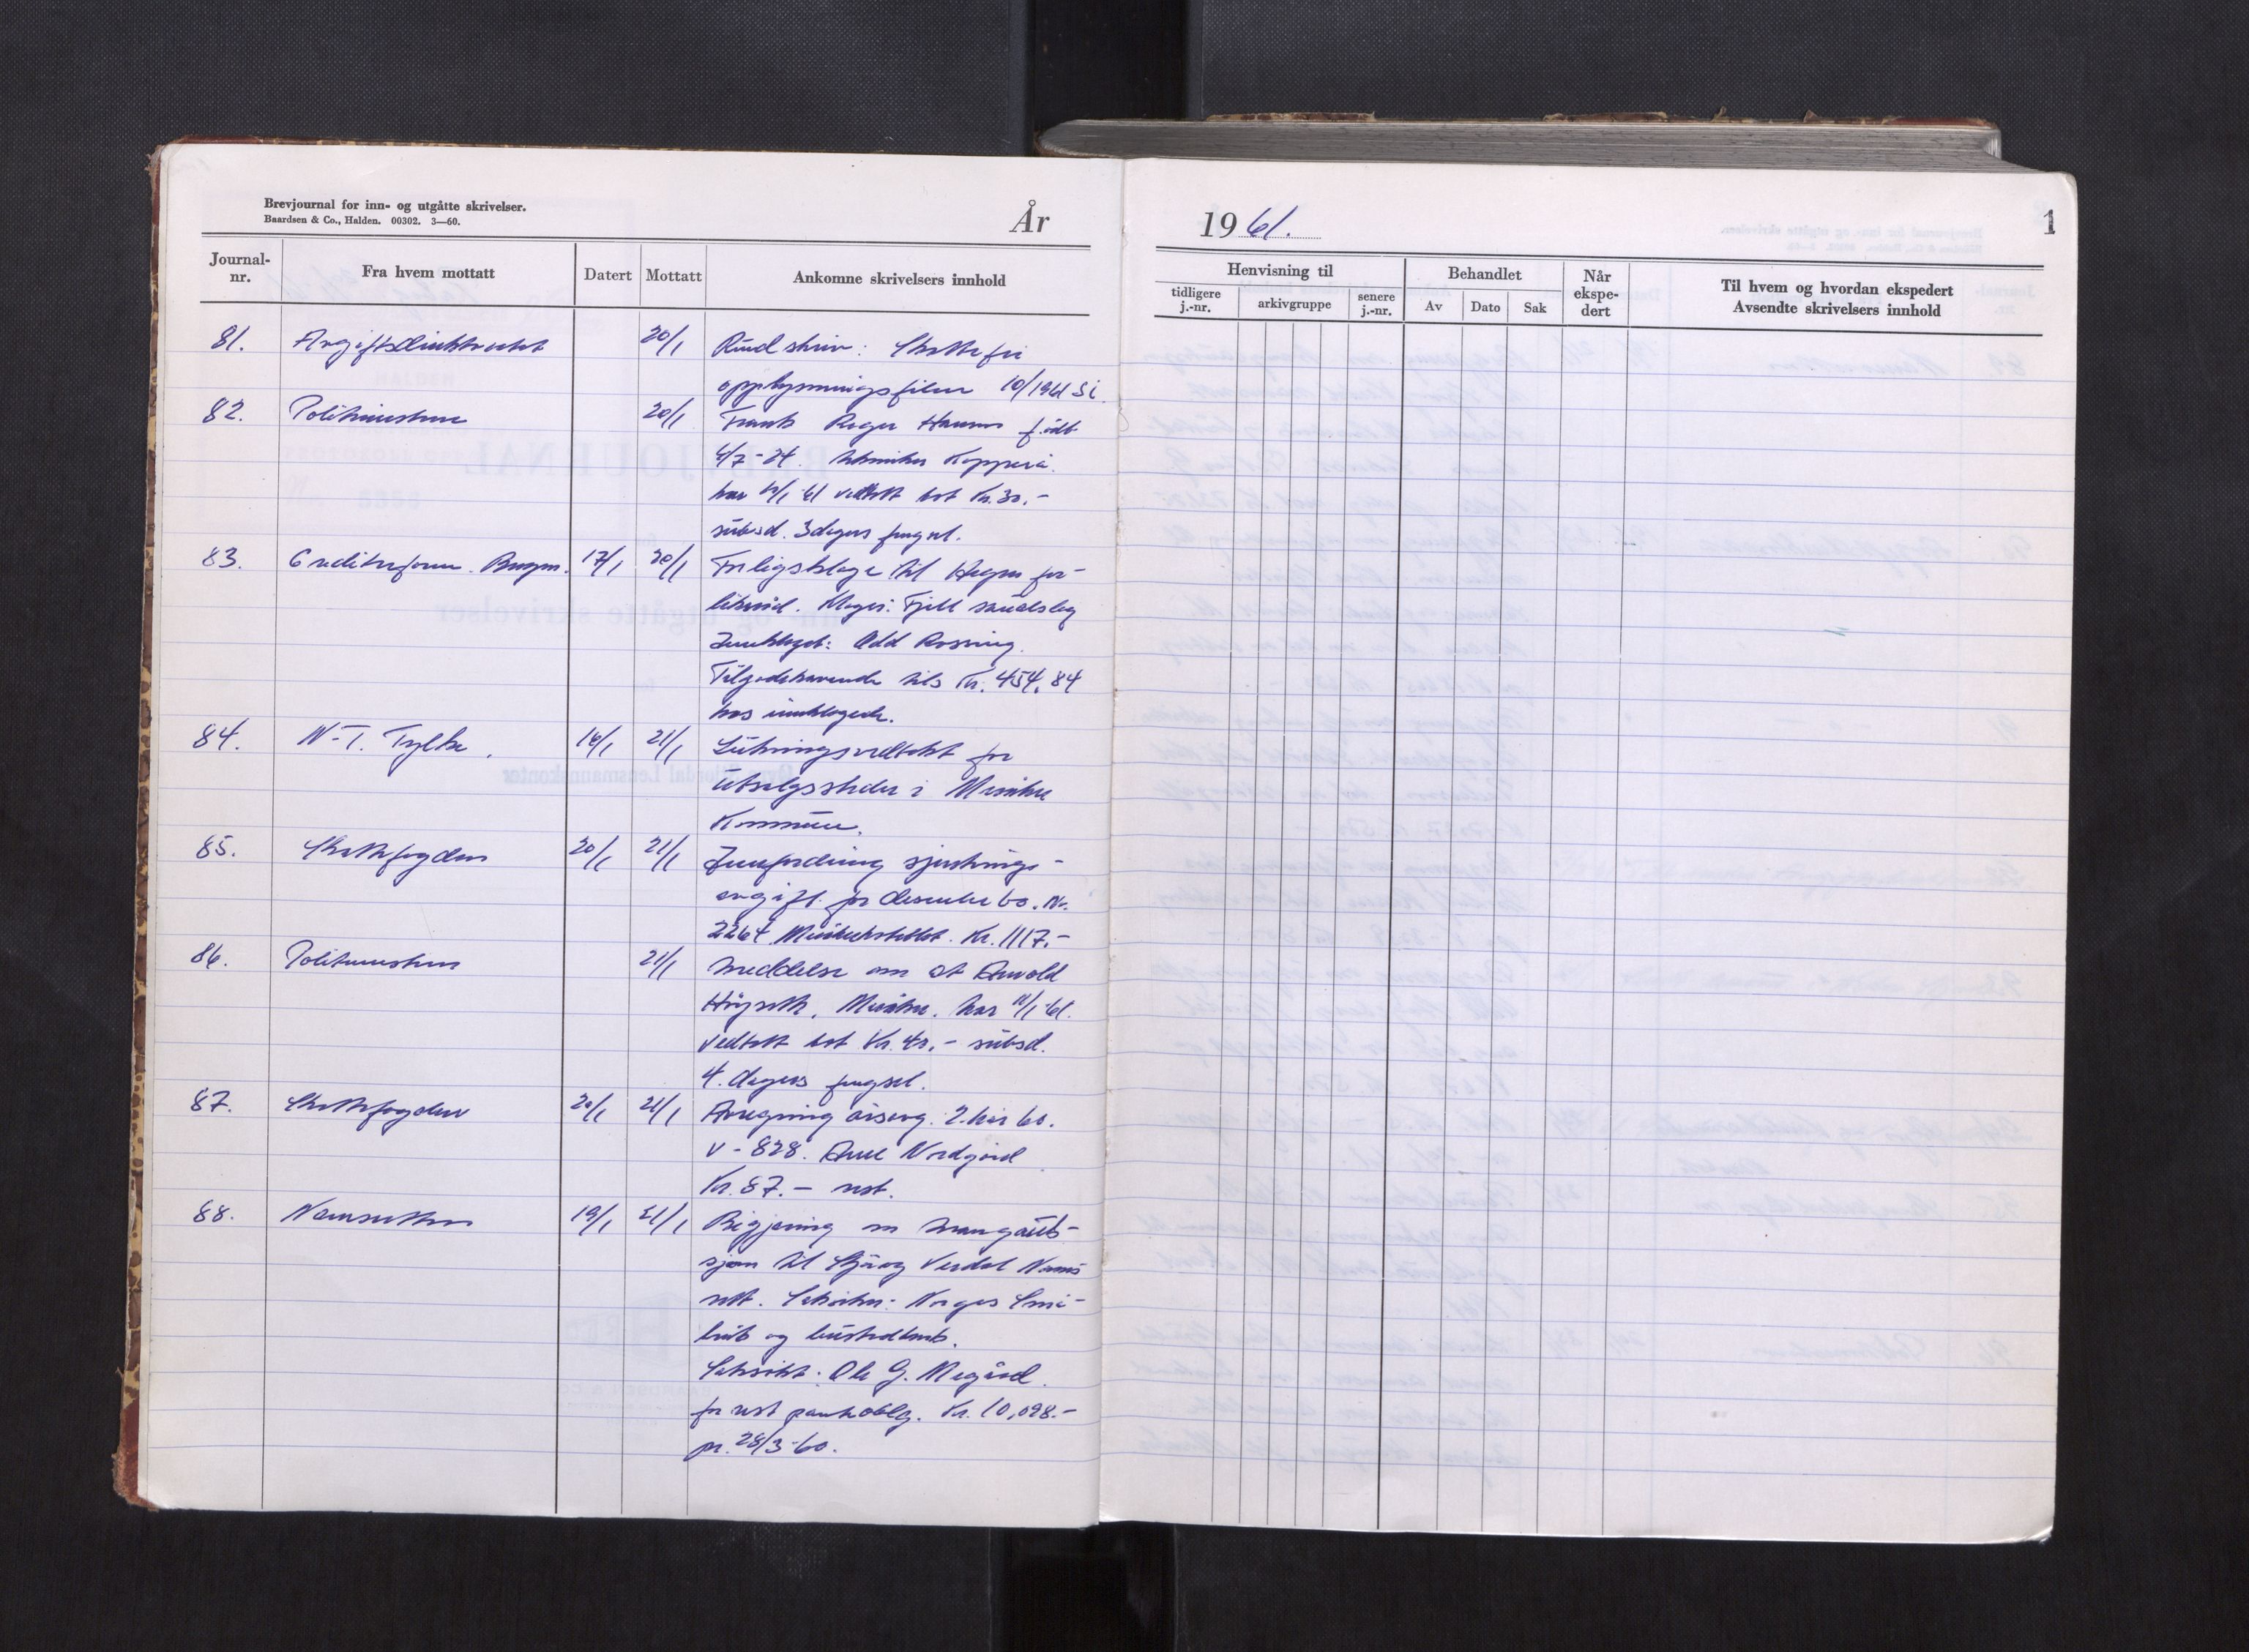 Brevjournal for inn- og utgåtte skrivelser.
Baardsen & Co., Halden. 00302. 3—60.
År
1961.
1
Journal-
nr.
Fra hvem mottatt
Datert
Mottatt
Ankomne skrivelsers innhold
Henvisning til
tidligere
j.-nr.
arkivgruppe
senere
j.-nr.
Behandlet
Av
Dato
Sak
Når
ekspe-
dert
Til hvem og hvordan ekspedert
Avsendte skrivelsers innhold
81. Avgiftsdirektoratet 20/1 Rundskriv: Skattefri
opplysningsfilm 10/1961 Si.
82. Politimesteren 20/1 Frank Roger Hansen født
4/7-24. tekniker Kopperå.
har /1 61 vedtatt bot Kr. 30.-
subsd. 3 dagers fengsel.
83. Creditreform. 17/1 20/1 Forliksklage til Hegra for-
liksråd. Klager: Fjell
Innklaget: Odd Rosving.
Tilgodehavende tils Kr. 454,84
hos innklagede.
84. N-T. Fylke. 16/1 21/1 Lukningsvedtekt for
utsalgssteder i Meråker
Kommune.
85. Skattefogden 20/1 21/1 Innfordring
avgift for desember 60. Nr.
2264 Kr. 1117.-
86. Politimesteren 21/1 Meddelse om at Arnold
Høyseth, Meråker. har 11/1-61.
vedtatt bot Kr. 40.- subsd.
4. dagers fengsel.
87. Skattefogden 20/1 21/1 Avregning årsavg. 2. hår 60.
V - 828. Arne Nordgård
Kr. 87.- rest.
88. Namsretten 19/1 21/1 Begjæring om tvangsauk-
sjon til Stjør og Verdal Nams
rett. Saksøker: Norges Små-
bruk og bustadbank.
Saksøkt: Ole G. Megård.
for rest pantoblg. Kr. 10,098.-
pr. 28/3-60.